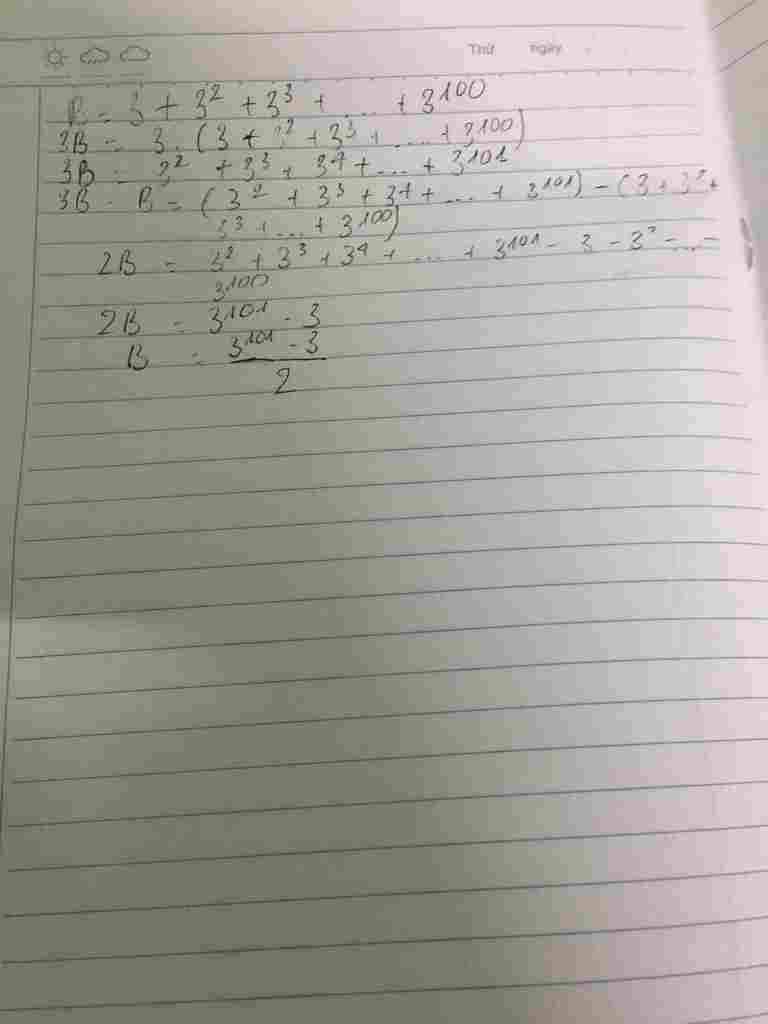 Thứ ngày
B = 3 + 3² + 3³ + ... + 3¹⁰⁰
3B = 3. (3 + 3² + 3³ + .... + 3¹⁰⁰)
3B = 3² + 3³ + 3⁴ + ... + 3¹⁰¹
3B - B = (3² + 3³ + 3⁴ + ... + 3¹⁰¹) - (3 + 3² +
3³ + ... + 3¹⁰⁰)
2B = 3² + 3³ + 3⁴ + ... + 3¹⁰¹ - 3 - 3² - ... -
3¹⁰⁰
2B = 3¹⁰¹ - 3
B = 3¹⁰¹ - 3
2